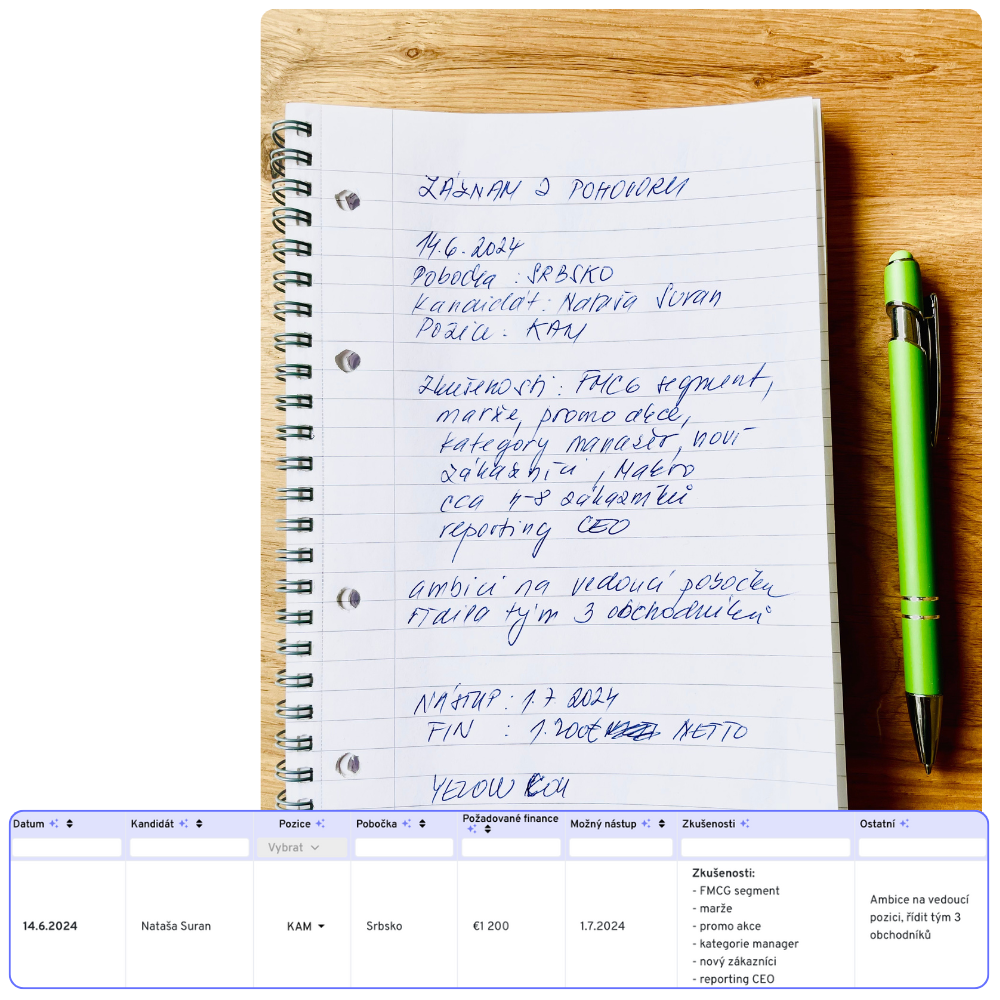 ZÁZNAM Z POHOVORU
14.6.2024
Pobočka : SRBSKO
Kandidát : Nataša Suran
Pozice : KAM
Zkušenosti : FMCG segment,
marže, promo akce,
kategory manažer, noví
zákazníci, Makro
cca 4-8 zákazníků
reporting CEO
ambici na vedoucí pobočky
řídila tým 3 obchodníků
NÁSTUP : 1.7 2024
FIN : 1.200€ NETTO
Datum Kandidát Pozice Pobočka Požadované finance Možný nástup Zkušenosti Ostatní
Vybrat
14.6.2024
Nataša Suran
KAM
Srbsko
€1 200
1.7.2024
Zkušenosti:
- FMCG segment
- marže
- promo akce
- kategorie manager
- nový zákazníci
- reporting CEO
Ambice na vedoucí
pozici, řídit tým 3
obchodníků